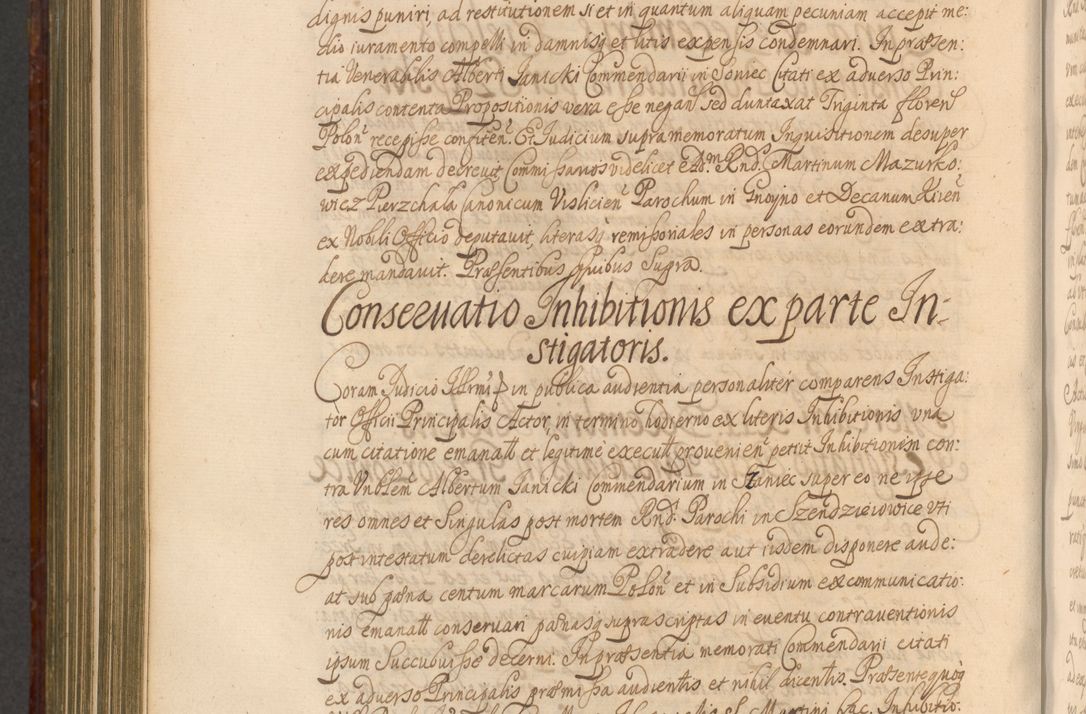 dignis puniri, ad restitutionem si et in quantum aliquam pecuniam accepit me:
dio iuramento compelli in damnisq et litis expensis condemnari. In præsen:
tia Venerabilis Alberti Janicki Commendarii in Soniec Citati ex adverso Prin:
cipalis contenta Propositionis vera esse negan sed duntaxat Triginta floren
Polon recepisse confiten. Et Judicium supramemoratum Inquisitionem desuper
expediendam decrevit Commissarios videlicet Adm Rnd. Martinum Mazurko:
wicz Pierzchala Canonicum Vislicien Parochum in Gnoyno et Decanum Kijen
ex Nobili Officio deputavit, literasq remissoriales in personas eorundem extra:
dere mandavit. Præsentibus quibus Supra.
Conservatio Inhibitionis ex parte In-
stigatoris.
Coram Judicio Illrmi in publica audientia personaliter comparens Instiga:
tor Officii Principalis Actor, in termino hodierno ex literis Inhibitionis una
cum citatione emanatt et legitime execut provenien petiit Inhibitionem con:
tra Vnblem Albertum Janicki Commendarium in Staniec super eo ne ipse
res omnes et Singulas post mortem Rnd. Parochi in Szendzieiowice uti
post intestatum derelictas cuipiam extradere aut iisdem disponere aude:
at sub pæna centum marcarum Polon et in Subsidium excommunicatio:
nis emanatt conservari pænasq suprascriptas in eventu contraventionis
ipsum Succubuisse decerni. In præsentia memorati Commendarii citati
ex adverso Principalis præmissa audientis et nihil dicentis. Præsente quoq